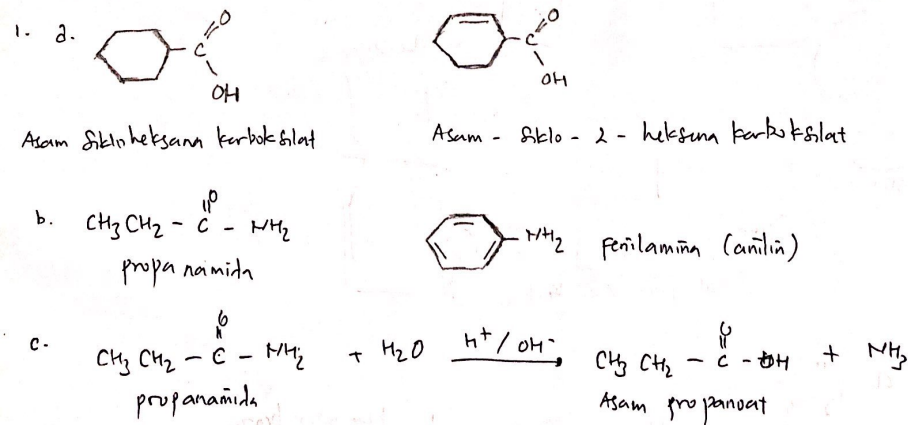 1. a.
O
C
OH
O
C
OH
Asam Siklo heksana karboksilat
Asam - Siklo - 2 - heksena karboksilat
b. CH3CH2 - C - NH2
O
propanamida
NH2 fenilamina (anilin)
c. CH3 CH2 - C - NH2 + H2O H+ / OH- CH3 CH2 - C - OH + NH3
O
O
propanamida
Asam propanoat